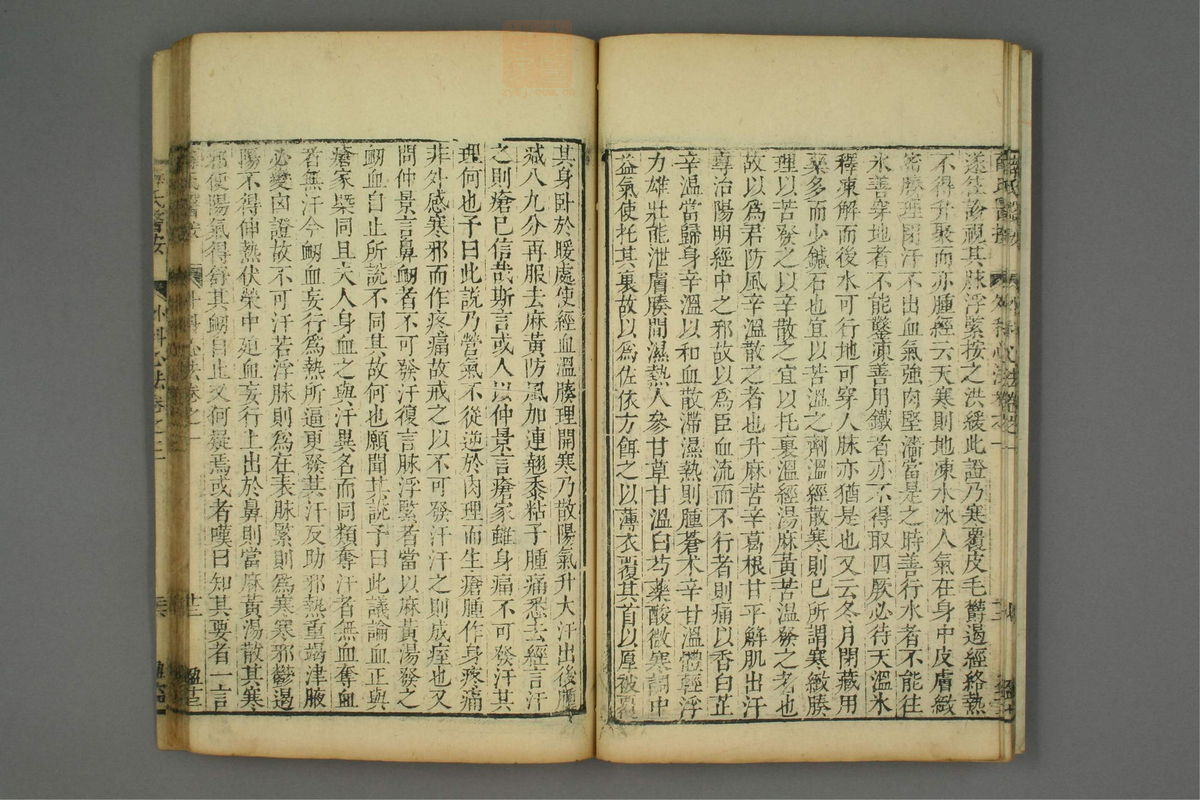 遂往診視其脉浮緊按之洪緩此證乃寒覆皮毛欝遏經絡熱
不得升聚而亦腫經云天寒則地凍水冰人氣在身中皮膚緻
密腠理閉汗不出血氣強肉堅濇當是之時善行水者不能往
氷善穿地者不能鑿凍善用鐵者亦不得取四厥必待天溫氷
釋凍解而後水可行地可穿人脉亦猶是也又云冬月閉藏用
藥多而少鍼石也宜以苦溫之劑溫經散寒則已所謂寒緻腠
理以苦發之以辛散之宜以托裏溫經湯麻黃苦溫發之者也
故以爲君防風辛溫散之者也升麻苦辛葛根甘平解肌出汗
專治陽明經中之邪故以爲臣血流而不行者則痛以香白芷
辛溫當歸身辛溫以和血散滯濕熱則腫蒼术辛甘溫體輕浮
力雄壯能泄膚腠間濕熱人參甘草甘溫白芍藥酸微寒調中
益氣使托其裏故以爲佐依方餌之以薄衣覆其首以厚被覆
其身卧於暖處使經血溫腠理開寒乃散陽氣升大汗出後腫
减八九分再服去麻黃防風加連翹黍粘子腫痛悉去經言汗
之則瘡已信哉斯言或人以仲景言瘡家雖身痛不可發汗其
理何也予曰此說乃營氣不從逆於肉理而生瘡腫作身疼痛
非外感寒邪而作疼痛故戒之以不可發汗汗之則成痓也又
問仲景言鼻衂者不可發汗復言脉浮緊者當以麻黃湯發之
衂血自止所說不同其故何也願聞其說予曰此議論血正與
瘡家槩同且夫人身血之與汗異名而同類奪汗者無血奪血
者無汗今衂血妄行爲熱所逼更發其汗反助邪熱重竭津液
必變凶證故不可汗若浮脉則爲在表脉緊則爲寒寒邪鬱遏
陽不得伸熱伏榮中廹血妄行上出於鼻則當麻黃湯散其寒
邪使陽氣得舒其衂自止又何疑焉或者嘆曰知其要者一言